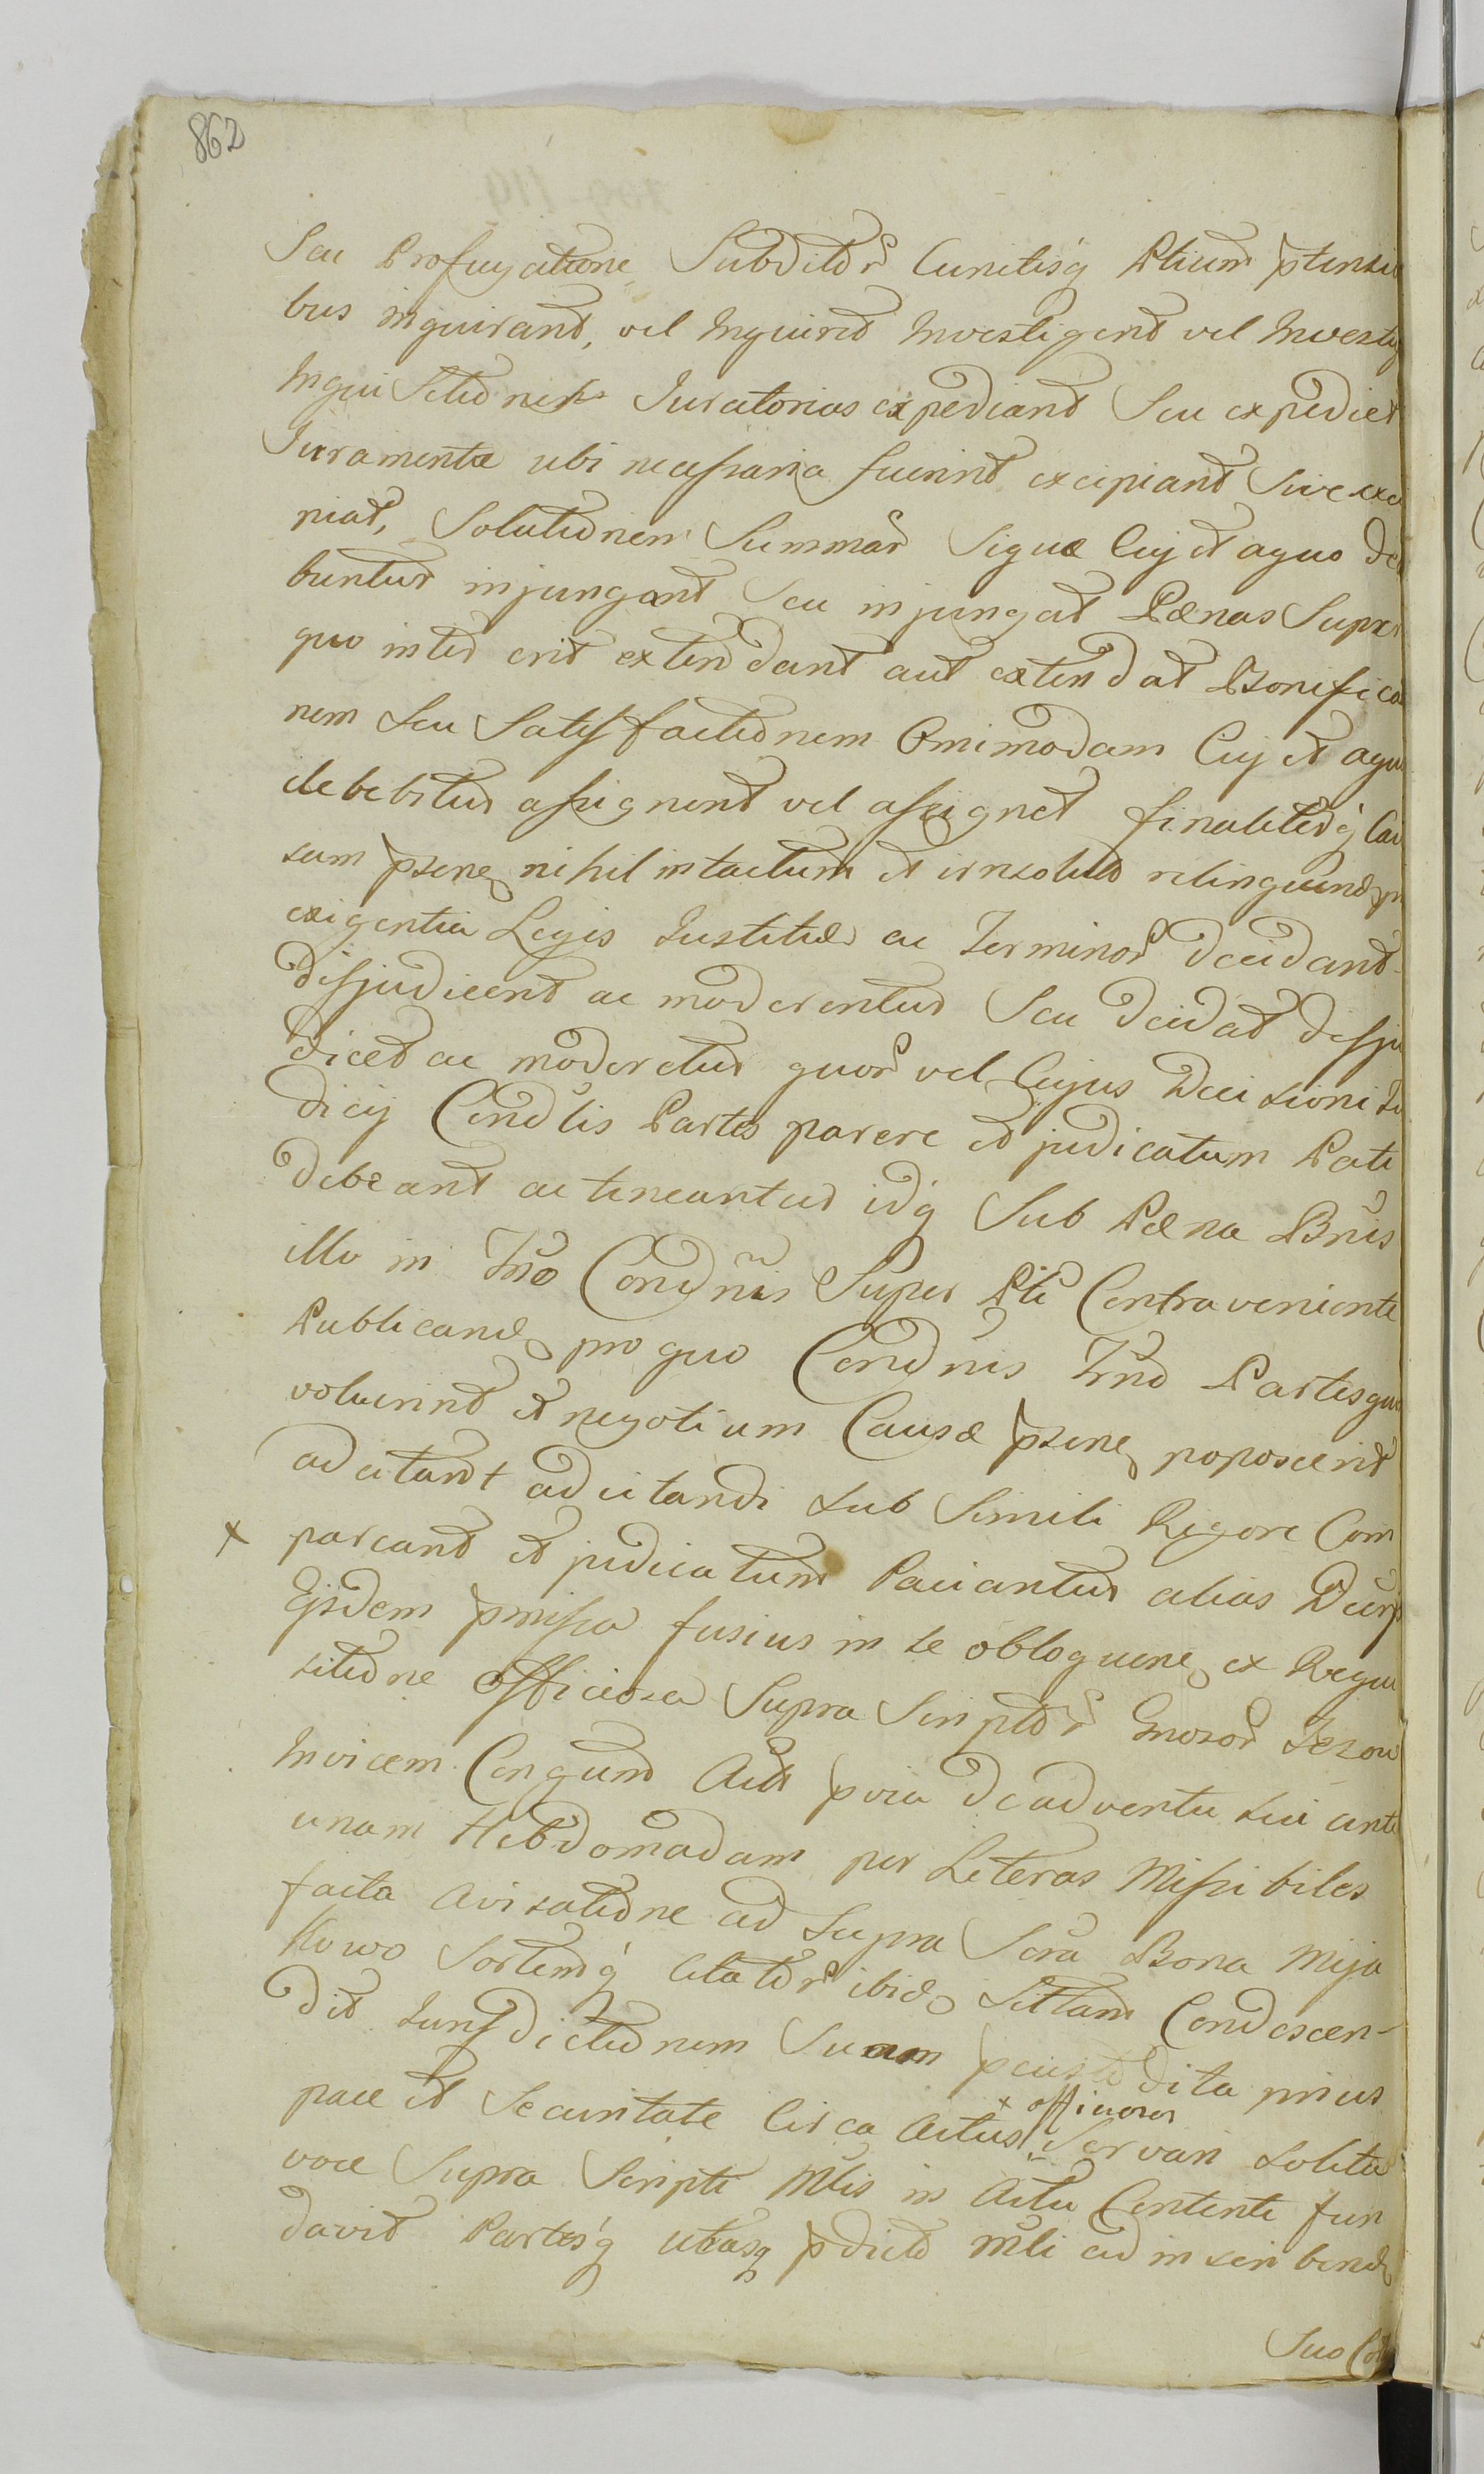 862
Seu Profugatione Subditor Cunctisq Ptium ptensio
bus inquirant, vel Inquiret Investigent vel Investig
Inquisitiones Juratorias expediant Seu expediet
Juramenta ubi necessaria fuerint excipiant Sive exci
piat, Solutionem Summar Siquæ Cuj et aquo de
buntur injungant Seu injungat Pænas Super
quo inter erit extendant aut extendat Bonifica
nem Seu Satisfactionem Omimodam Cuj et aquo
debebitur assignent vel assignet finaliterq Cau
sam psene nihil intactum et irresolut relinquend
exigentia Legis Justitiæ ac Terminor decidant
disjudicent ac moderentur Seu decidat disju
dicet ac moderetur quor vel Cujus Decisioni Ju
dicij Condlis Partes parere et judicatum Pati
debeant ac teneantur idq Sub Pæna Bnis
illo in Tno Condnis Super Pte Contraveniente
Publicand pro quo Condnis Tno Partes qua
voluerint et negotium Causæ psene poposcerit
adcitant adcitandi sub Simili Rigore Com
x pareant et judicatum Paciantur alias Decrt
Ejsdem pmissa fusius in se obloquene ex Requi
sitione officiosa Supra Scriptor Gnosor
Invicem Congund Actr pvia de adventu sui ante
unam Hebdomadam per Literas Missibiles
facta avisatione ad Supra Scra Bona Mija
kowo Sortemq Citator ibid Sittam Condescen-
dit Jurisdictionem Suam dita prius
pace et Securitate Circa Actus x officiosos Servari solita
voce Supra Scripti Mlis in Actu Contenti fun
davit Partesq utrasq pdicto Mli ad inscribend
Suo